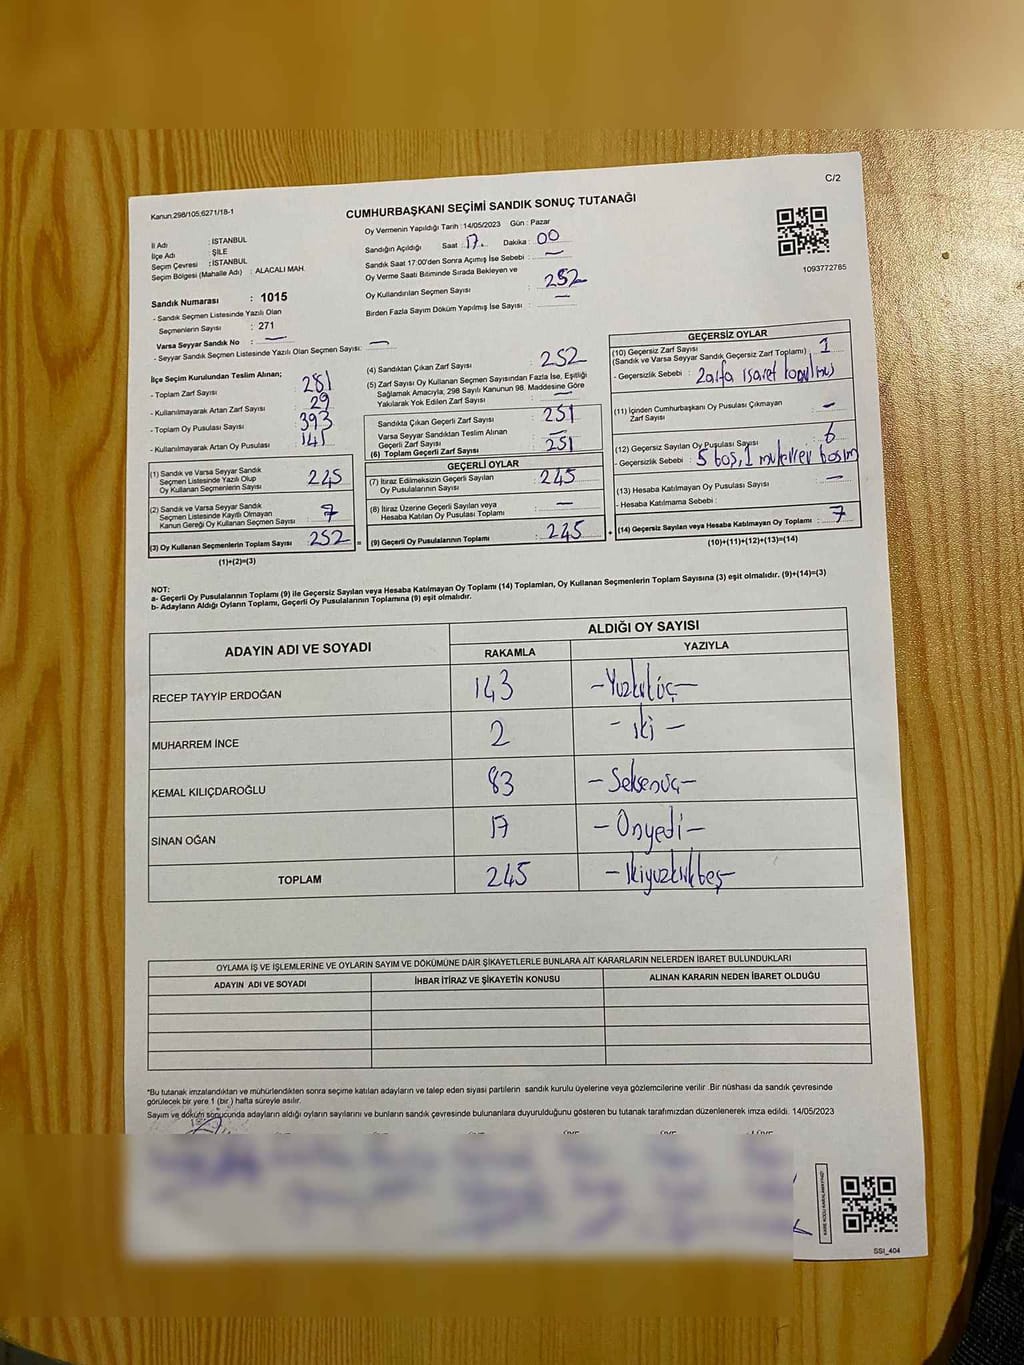 C/2
Kanun.298/105,6271/18-1
CUMHURBAŞKANI SEÇİMİ SANDIK SONUÇ TUTANAĞI
İl Adı : İSTANBUL
İlçe Adı : ŞİLE
Seçim Çevresi : İSTANBUL
Seçim Bölgesi (Mahalle Adı) : ALACALI MAH.
Oy Vermenin Yapıldığı Tarih : 14/05/2023 Gün : Pazar
Sandığın Açıldığı Saat : 17. Dakika : 00
Sandık Saat 17:00'den Sonra Açımış İse Sebebi : —
Oy Verme Saati Bitiminde Sırada Bekleyen ve
Oy Kullandırılan Seçmen Sayısı : 252
Birden Fazla Sayım Döküm Yapılmış İse Sayısı : —
1093772765
Sandık Numarası : 1015
- Sandık Seçmen Listesinde Yazılı Olan
Seçmenlerin Sayısı : 271
Varsa Seyyar Sandık No : —
- Seyyar Sandık Seçmen Listesinde Yazılı Olan Seçmen Sayısı: —
İlçe Seçim Kurulundan Teslim Alınan;
- Toplam Zarf Sayısı : 281
- Kullanılmayarak Artan Zarf Sayısı : 29
- Toplam Oy Pusulası Sayısı : 393
- Kullanılmayarak Artan Oy Pusulası : 141
(1) Sandık ve Varsa Seyyar Sandık
Seçmen Listesinde Yazılı Olup
Oy Kullanan Seçmenlerin Sayısı : 245
(2) Sandık ve Varsa Seyyar Sandık
Seçmen Listesinde Kayıtlı Olmayan
Kanun Gereği Oy Kullanan Seçmen Sayısı : 7
(3) Oy Kullanan Seçmenlerin Toplam Sayısı : 252 =
(1)+(2)=(3)
(4) Sandıktan Çıkan Zarf Sayısı : 252
(5) Zarf Sayısı Oy Kullanan Seçmen Sayısından Fazla İse, Eşitliği
Sağlamak Amacıyla; 298 Sayılı Kanunun 98. Maddesine Göre
Yakılarak Yok Edilen Zarf Sayısı : —
Sandıkta Çıkan Geçerli Zarf Sayısı : 251
Varsa Seyyar Sandıktan Teslim Alınan
Geçerli Zarf Sayısı : —
(6) Toplam Geçerli Zarf Sayısı : 251
GEÇERLİ OYLAR
(7) İtiraz Edilmeksizin Geçerli Sayılan
Oy Pusulalarının Sayısı : 245
(8) İtiraz Üzerine Geçerli Sayılan veya
Hesaba Katılan Oy Pusulası Toplamı : —
(9) Geçerli Oy Pusulalarının Toplamı : 245 +
GEÇERSİZ OYLAR
(10) Geçersiz Zarf Sayısı
(Sandık ve Varsa Seyyar Sandık Geçersiz Zarf Toplamı) : 1
- Geçersizlik Sebebi : Zarfa işaret konulmuş
(11) İçinden Cumhurbaşkanı Oy Pusulası Çıkmayan
Zarf Sayısı : —
(12) Geçersiz Sayılan Oy Pusulası Sayısı : 6
- Geçersizlik Sebebi : 5 boş, 1 mükerrer basım
(13) Hesaba Katılmayan Oy Pusulası Sayısı : —
- Hesaba Katılmama Sebebi :
(14) Geçersiz Sayılan veya Hesaba Katılmayan Oy Toplamı : 7
(10)+(11)+(12)+(13)=(14)
NOT:
a- Geçerli Oy Pusulalarının Toplamı (9) ile Geçersiz Sayılan veya Hesaba Katılmayan Oy Toplamı (14) Toplamları, Oy Kullanan Seçmenlerin Toplam Sayısına (3) eşit olmalıdır. (9)+(14)=(3)
b- Adayların Aldığı Oyların Toplamı, Geçerli Oy Pusulalarının Toplamına (9) eşit olmalıdır.
ADAYIN ADI VE SOYADI
ALDIĞI OY SAYISI
RAKAMLA YAZIYLA
RECEP TAYYİP ERDOĞAN 143 —Yüzkırküç—
MUHARREM İNCE 2 — iki —
KEMAL KILIÇDAROĞLU 83 —Seksenüç—
SİNAN OĞAN 17 —Onyedi—
TOPLAM 245 —ikiyüzkırkbeş—
OYLAMA İŞ VE İŞLEMLERİNE VE OYLARIN SAYIM VE DÖKÜMÜNE DAİR ŞİKAYETLERLE BUNLARA AİT KARARLARIN NELERDEN İBARET BULUNDUKLARI
ADAYIN ADI VE SOYADI İHBAR İTİRAZ VE ŞİKAYETİN KONUSU ALINAN KARARIN NEDEN İBARET OLDUĞU
*Bu tutanak imzalandıktan ve mühürlendikten sonra seçime katılan adayların ve talep eden siyasi partilerin sandık kurulu üyelerine veya gözlemcilerine verilir .Bir nüshası da sandık çevresinde
görülecek bir yere 1 (bir ) hafta süreyle asılır.
Sayım ve döküm sonucunda adayların aldığı oyların sayılarını ve bunların sandık çevresinde bulunanlara duyurulduğunu gösteren bu tutanak tarafımızdan düzenlenerek imza edildi. 14/05/2023
SSI_404